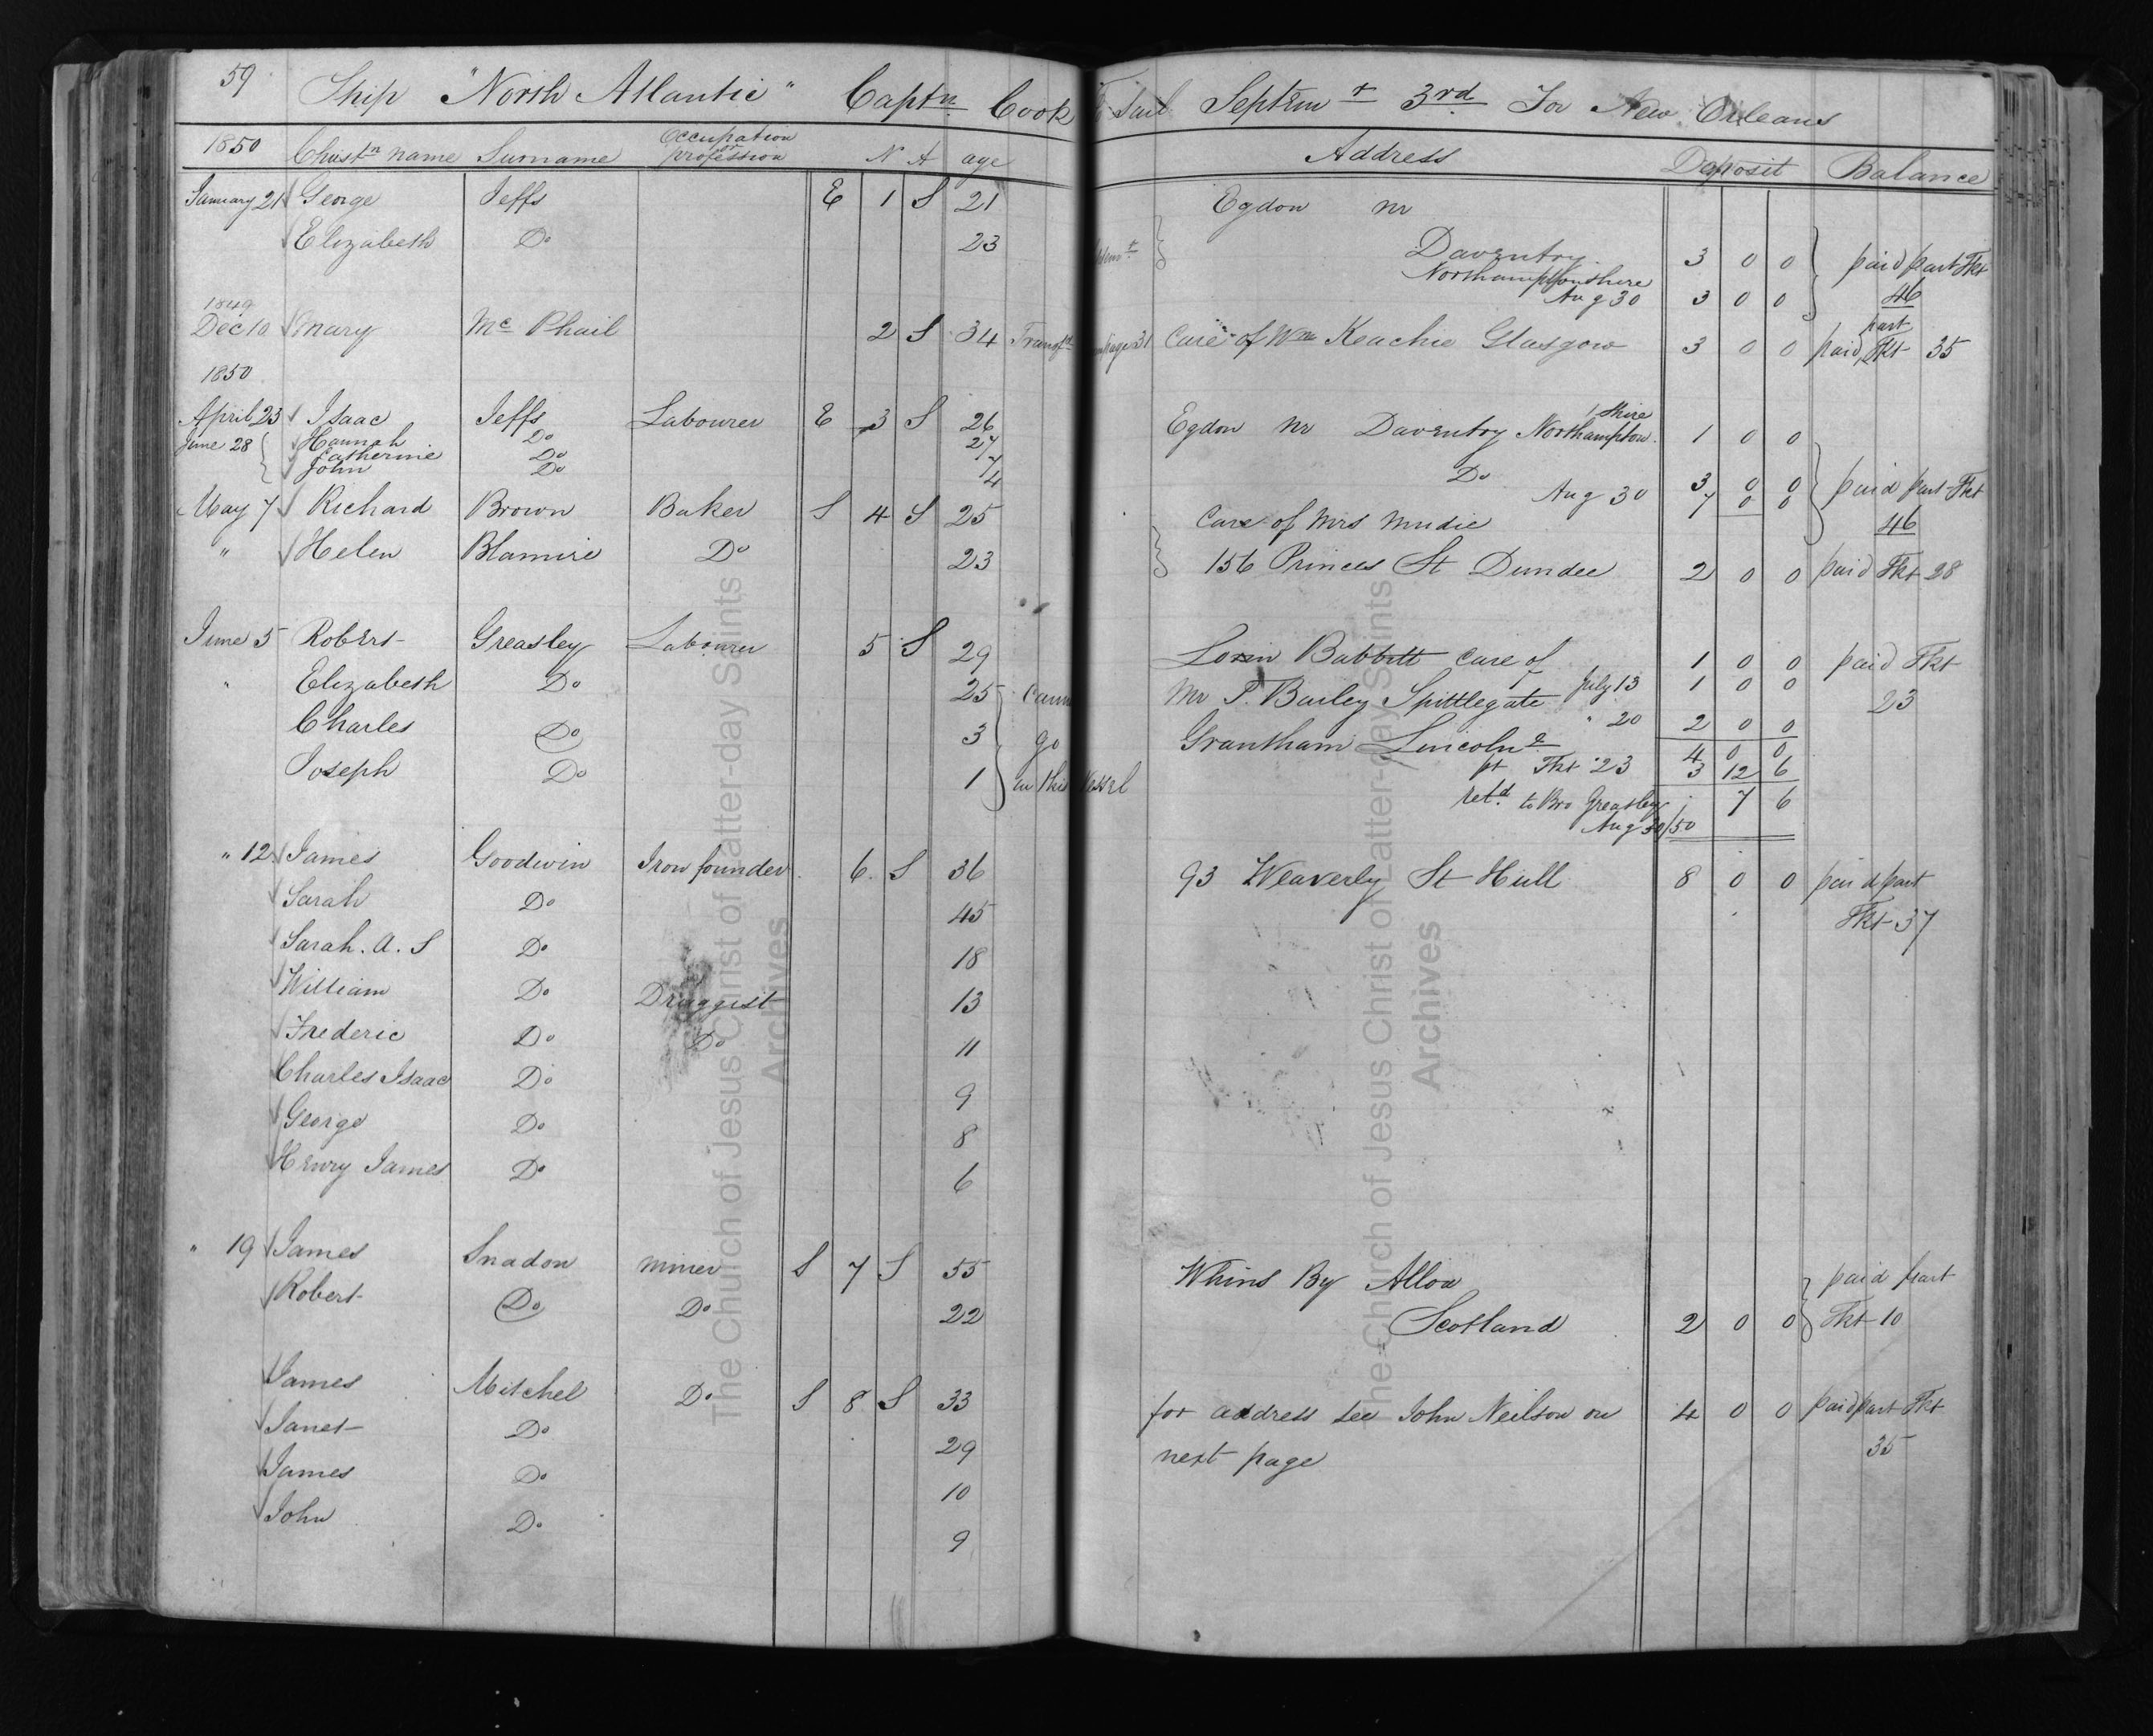 59 Ship "North Atlantic" Captn Cook To Sail Septemr 3rd For New Orleans
1850 Christn name Surname Occupation or profession N A age Address Deposit Balance
January 21 George Jeffs E 1 S 21 Egdon nr
Elizabeth Do 23 Daventry. 3 0 0 paid part Tkt
Northamptonshire
Aug 30 3 0 0 46
1849
Dec 10 Mary Mc Phail 2 S 34 Transfd page 31 Care of Wm Keachie Glasgow 3 0 0 paid part Tkt 35
1850
April 23 Isaac Jeffs Labourer E 3 S 26 Egdon nr Daventry Northampton shire 1 0 0
June 28 Hannah Do 27
Catherine Do 7 Do 3 0 0 paid part Tkt
John Do 4 Aug 30 7 0 0 46
May 7 Richard Brown Baker S 4 S 25 Care of Mrs Mudie
" Helen Blamire Do 23 156 Princes St Dundee 2 0 0 paid Tkt 28
June 5 Robert Greasley Labourer 5 S 29 Loren Babbitt Care of 1 0 0 paid Tkt
" Elizabeth Do 25 Mr P. Barley Spittlegate July 13 1 0 0 23
Charles Do 3 go Grantham Lincoln " 20 2 0 0
4 0 0
Joseph Do 1 in this Vessel pt Tkt 23 3 12 6
retd to Bro Greasley 7 6
Aug 30/50
" 12 James Goodwin Iron founder. 6. S 36 93 Weaverly St Hull 8 0 0 paid part
Sarah Do 45 Tkt 37
Sarah. A. S Do 18
William Do Druggist 13
Frederic Do Do 11
Charles Isaac Do 9
George Do 8
Henry James Do 6
" 19 James Snadon Miner S 7 S 55 Whins By Alloa paid part
Robert Do Do 22 Scotland 2 0 0 Tkt 10
James Mitchel Do S 8 S 33 for address see John Neilson on 4 0 0 paid part Tkt
Janet Do 29 next page 35
James Do 10
John Do 9
The Church of Jesus Christ of Latter-day Saints
Archives
The Church of Jesus Christ of Latter-day Saints
Archives